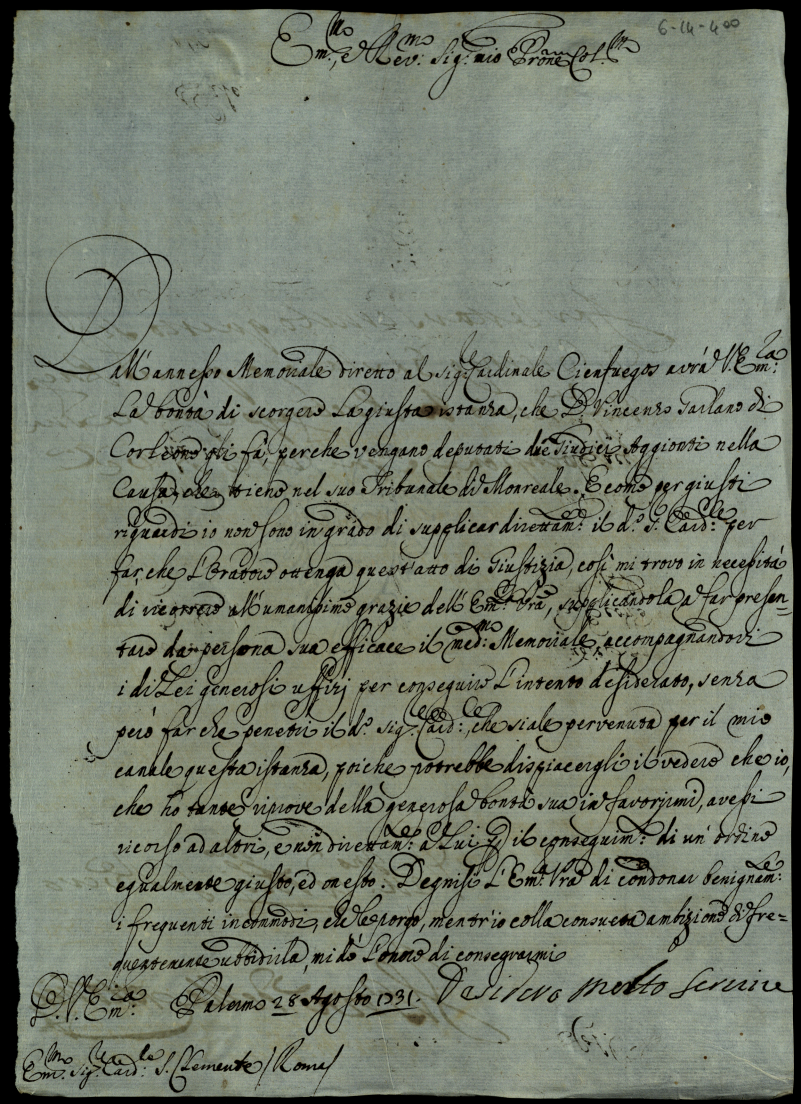 6-14-400
Em.mo, e Rev.mo Sig.r mio Prone Col.mo
Dall'annesso Memoriale diretto al Sig.r Cardinale Cienfuegos avrà V. Em.za
la bontà di scorgere la giusta istanza, che D. Vincenzo
Corleone gli fà, perche vengano deputati due Giudici Aggionti nella
Causa, che tiene nel suo Tribunale di Monreale. E come per giusti
riguardi io non sono in grado di supplicar direttam.e il d.o S. Card.le per
far, che l'Oratore ottenga quest'atto di Giustizia, così mi trovo in necessità
di ricorrere all'umanissime grazie dell'Em.za Vra, supplicandola a far presen-
tare da persona sua efficace il med.mo Memoriale, accompagnandovi
i di Lei generosi uffizj per conseguire l'intento desiderato, senza
però far che penetri il d.o Sig.r Card.le, che siale pervenuta per il mio
canale questa istanza, poiche potrebbe dispiacergli il vedere che io,
che hò tante riprove della generosa bontà sua in favorirmi, avessi
ricorso ad altri, e non direttam.e a Lui p il conseguim.o di un'ordine
egualmente giusto, ed onesto. Degnisi l'Em.za Vra di condonar benignam.e
i frequenti incommodi, che le porgo, mentr'io colla consueta ambizione di fre=
quentemente ubbidirla, mi dò l'onore di consegrarmi
D. V. Em.za Palermo 28 Agosto 1731. Desidero molto servire
Em.mo Sig.r Card.le S. Clemente /Roma/